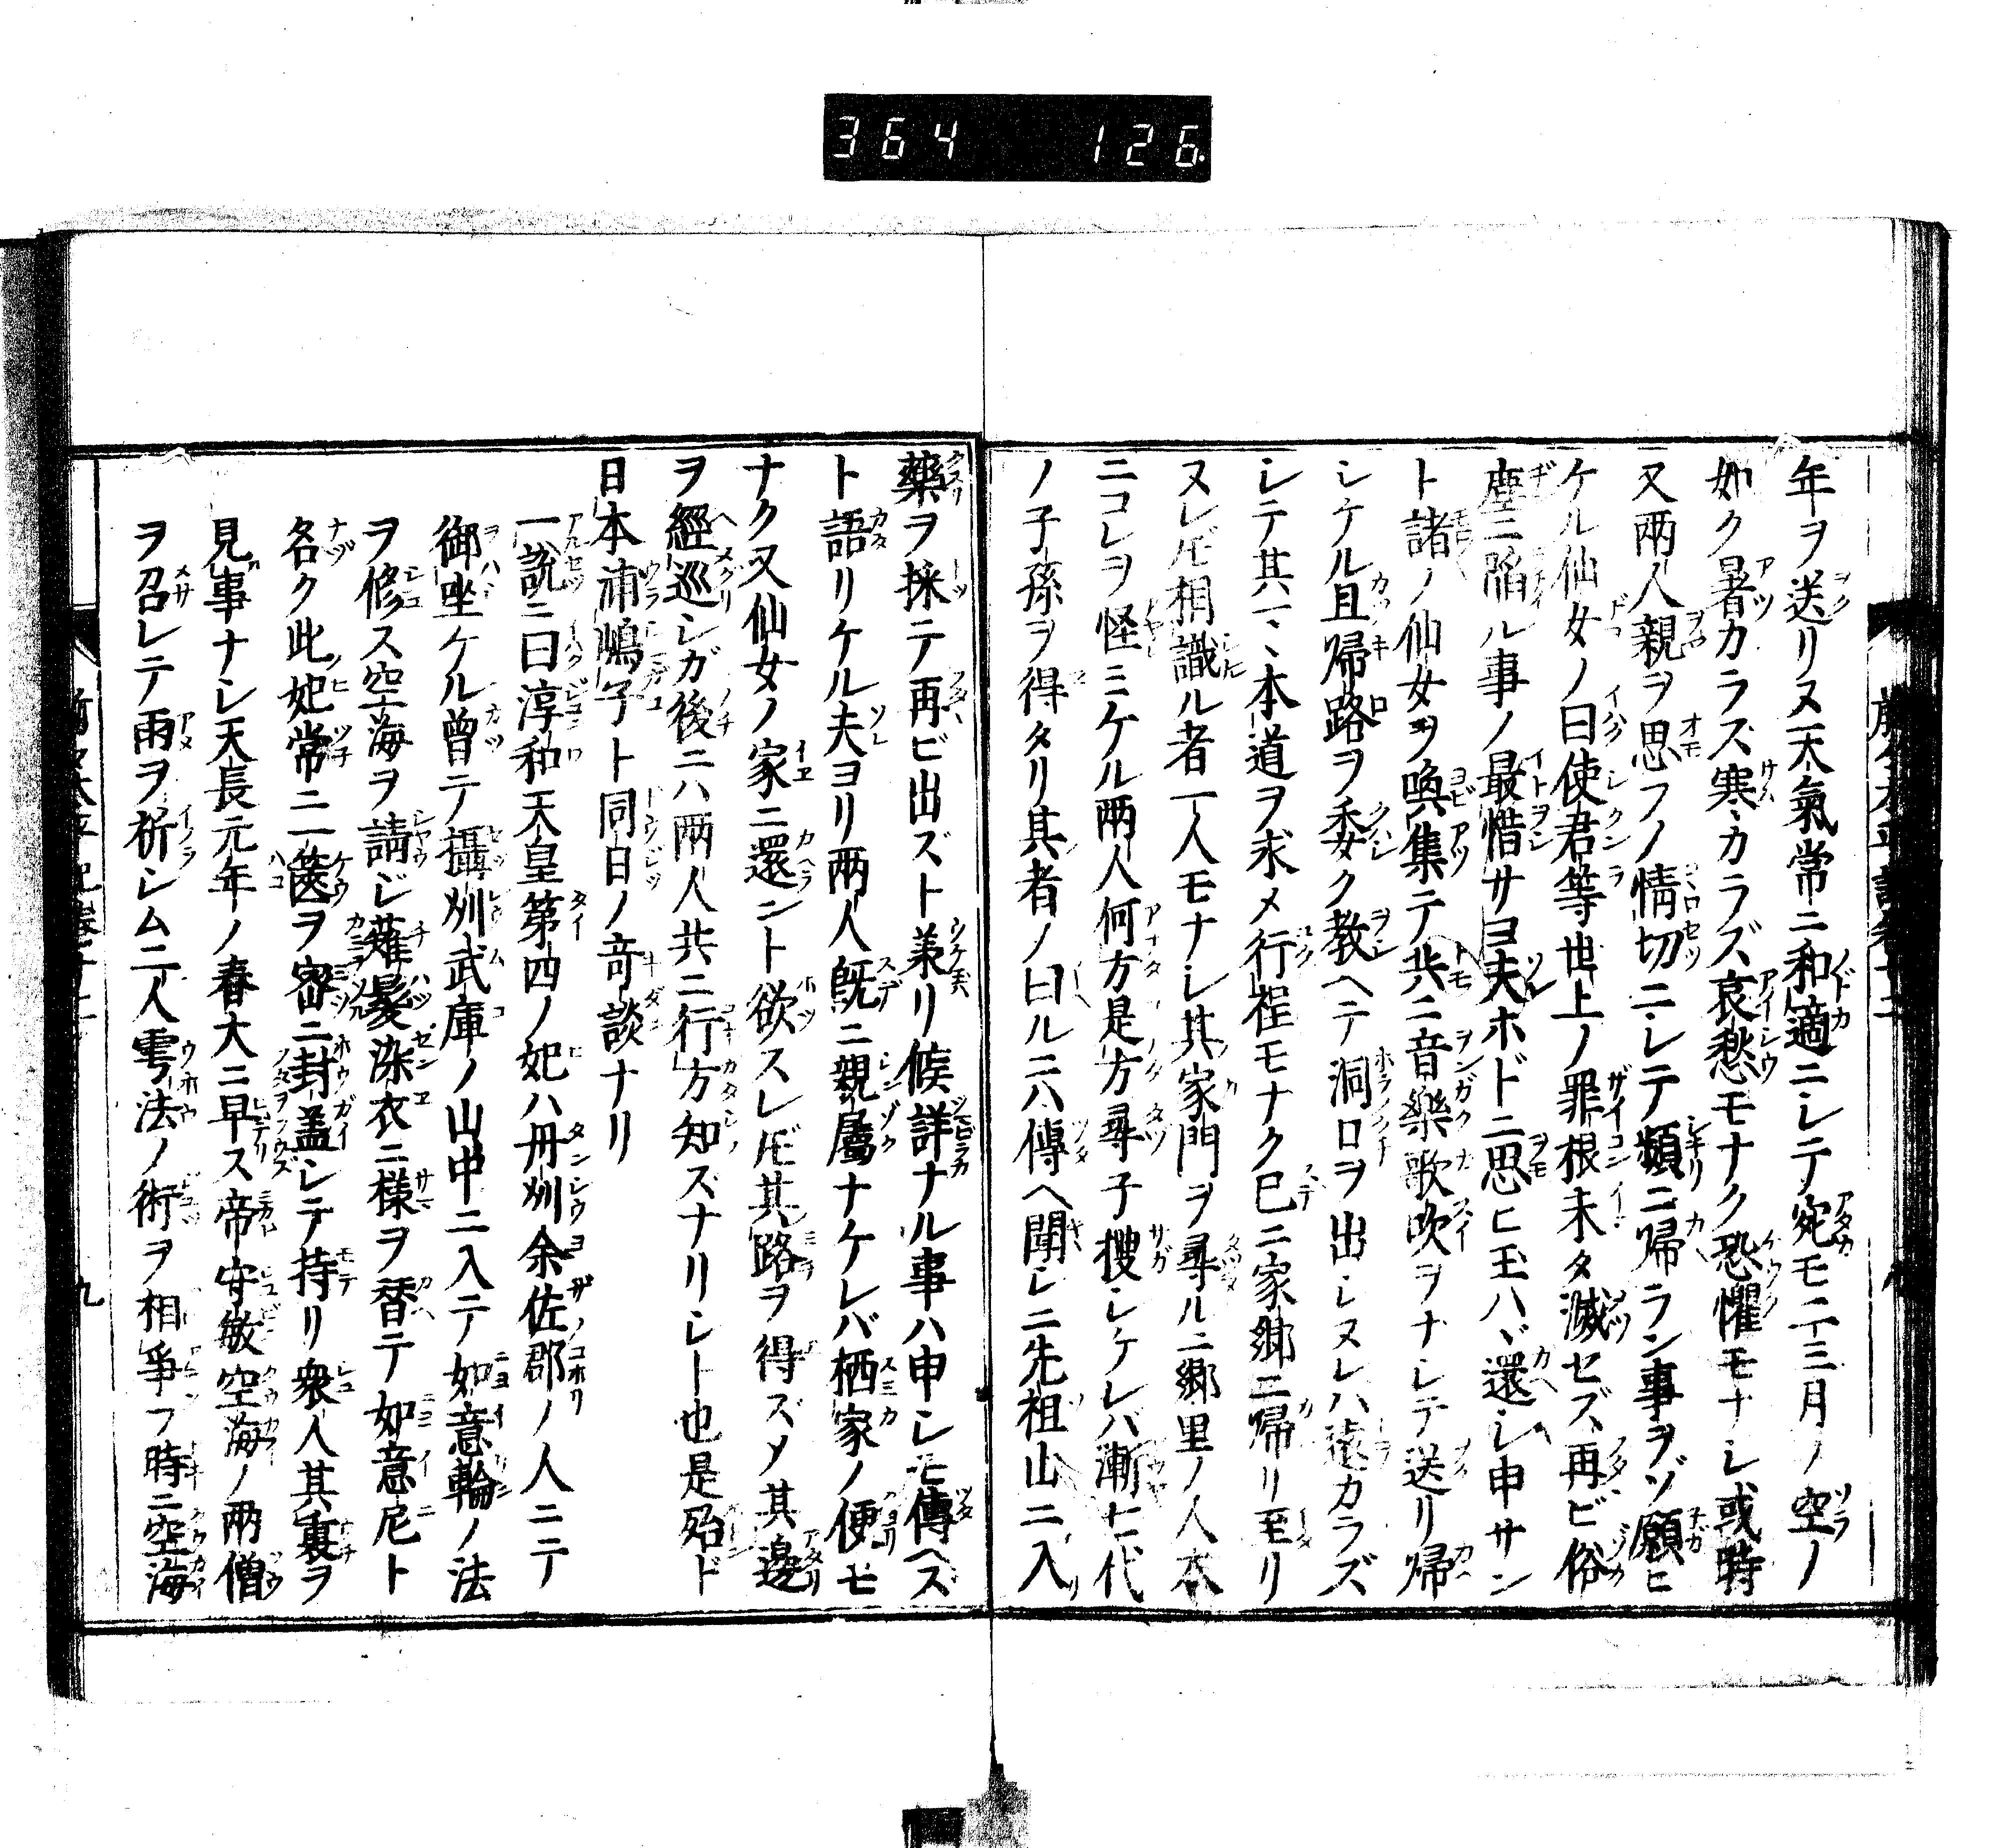 364 126
年ヲ送リヌ天氣常ニ和適ニシテ宛モ二三月ノ空ノ
如ク暑カラス寒カラズ哀愁モナク恐懼モナシ或時
又兩人親ヲ思フノ情切ニシテ頻ニ帰ラン事ヲゾ願ヒ
ケル仙女ノ曰使君等世上ノ罪根未タ滅セズ再ビ俗
塵ニ陷ル事ノ最惜サヨ夫ホドニ思ヒ玉ハヾ還シ申サン
ト諸ノ仙女ヲ喚集テ共ニ音樂歌吹ヲナシテ送リ帰
シケル且帰路ヲ委ク教ヘテ洞口ヲ出シヌレハ遠カラズ
シテ其ヽ本道ヲ求メ行程モナク已ニ家郷ニ帰リ至リ
ヌレ𪜈相識ル者一人モナシ其家門ヲ尋ルニ郷里ノ人本
ニコレヲ怪ミケル兩人何方是方尋子搜シケレバ漸七代
ノ子孫ヲ得タリ其者ノ曰ルニハ傳ヘ聞シニ先祖山ニ入
藥ヲ採テ再ビ出ズト兼リ候詳ナル事ハ申シモ傳ヘス
ト語リケル夫ヨリ兩人既ニ親屬ナケレバ栖家ノ便モ
ナク又仙女ノ家ニ還ント欲スレ𪜈其路ヲ得ズメ其邊
ヲ經巡シガ後ニハ兩人共ニ行方知ズナリシト也是殆ド
日本浦嶋子ト同日ノ奇談ナリ
一説ニ曰淳和天皇第四ノ妃ハ丹州余佐郡ノ人ニテ
御座ケル曾テ攝州武庫ノ山中ニ入テ如意輪ノ法
ヲ修ス空海ヲ請ジ薙髮染衣ニ様ヲ替テ如意尼ト
名ク此妃常ニ一篋ヲ密ニ封盖シテ持リ衆人其裏ヲ
見事ナシ天長元年ノ春大ニ早ス帝守敏空海ノ兩僧
ヲ召シテ雨ヲ祈シム二人雩法ノ術ヲ相爭フ時ニ空海
九